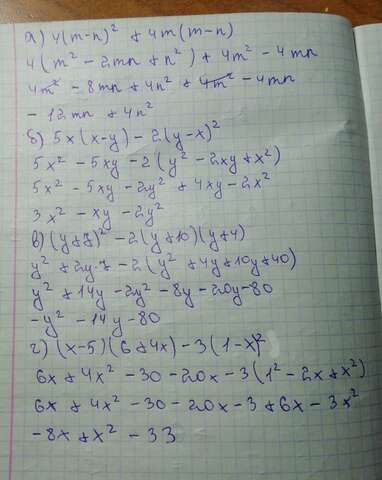 а) 4(m-n)² + 4m(m-n)
4(m² - 2mn + n²) + 4m² - 4mn
4m² - 8mn + 4n² + 4m² - 4mn
- 12mn + 4n²
б) 5x(x-y) - 2(y-x)²
5x² - 5xy - 2(y² - 2xy + x²)
5x² - 5xy - 2y² + 4xy - 2x²
3x² - xy - 2y²
в) (y+7)² - 2(y+10)(y+4)
y² + 2y·7 - 2(y² + 4y + 10y + 40)
y² + 14y - 2y² - 8y - 20y - 80
-y² - 14y - 80
г) (x-5)(6+4x) - 3(1-x)²
6x + 4x² - 30 - 20x - 3(1² - 2x + x²)
6x + 4x² - 30 - 20x - 3 + 6x - 3x²
-8x + x² - 33